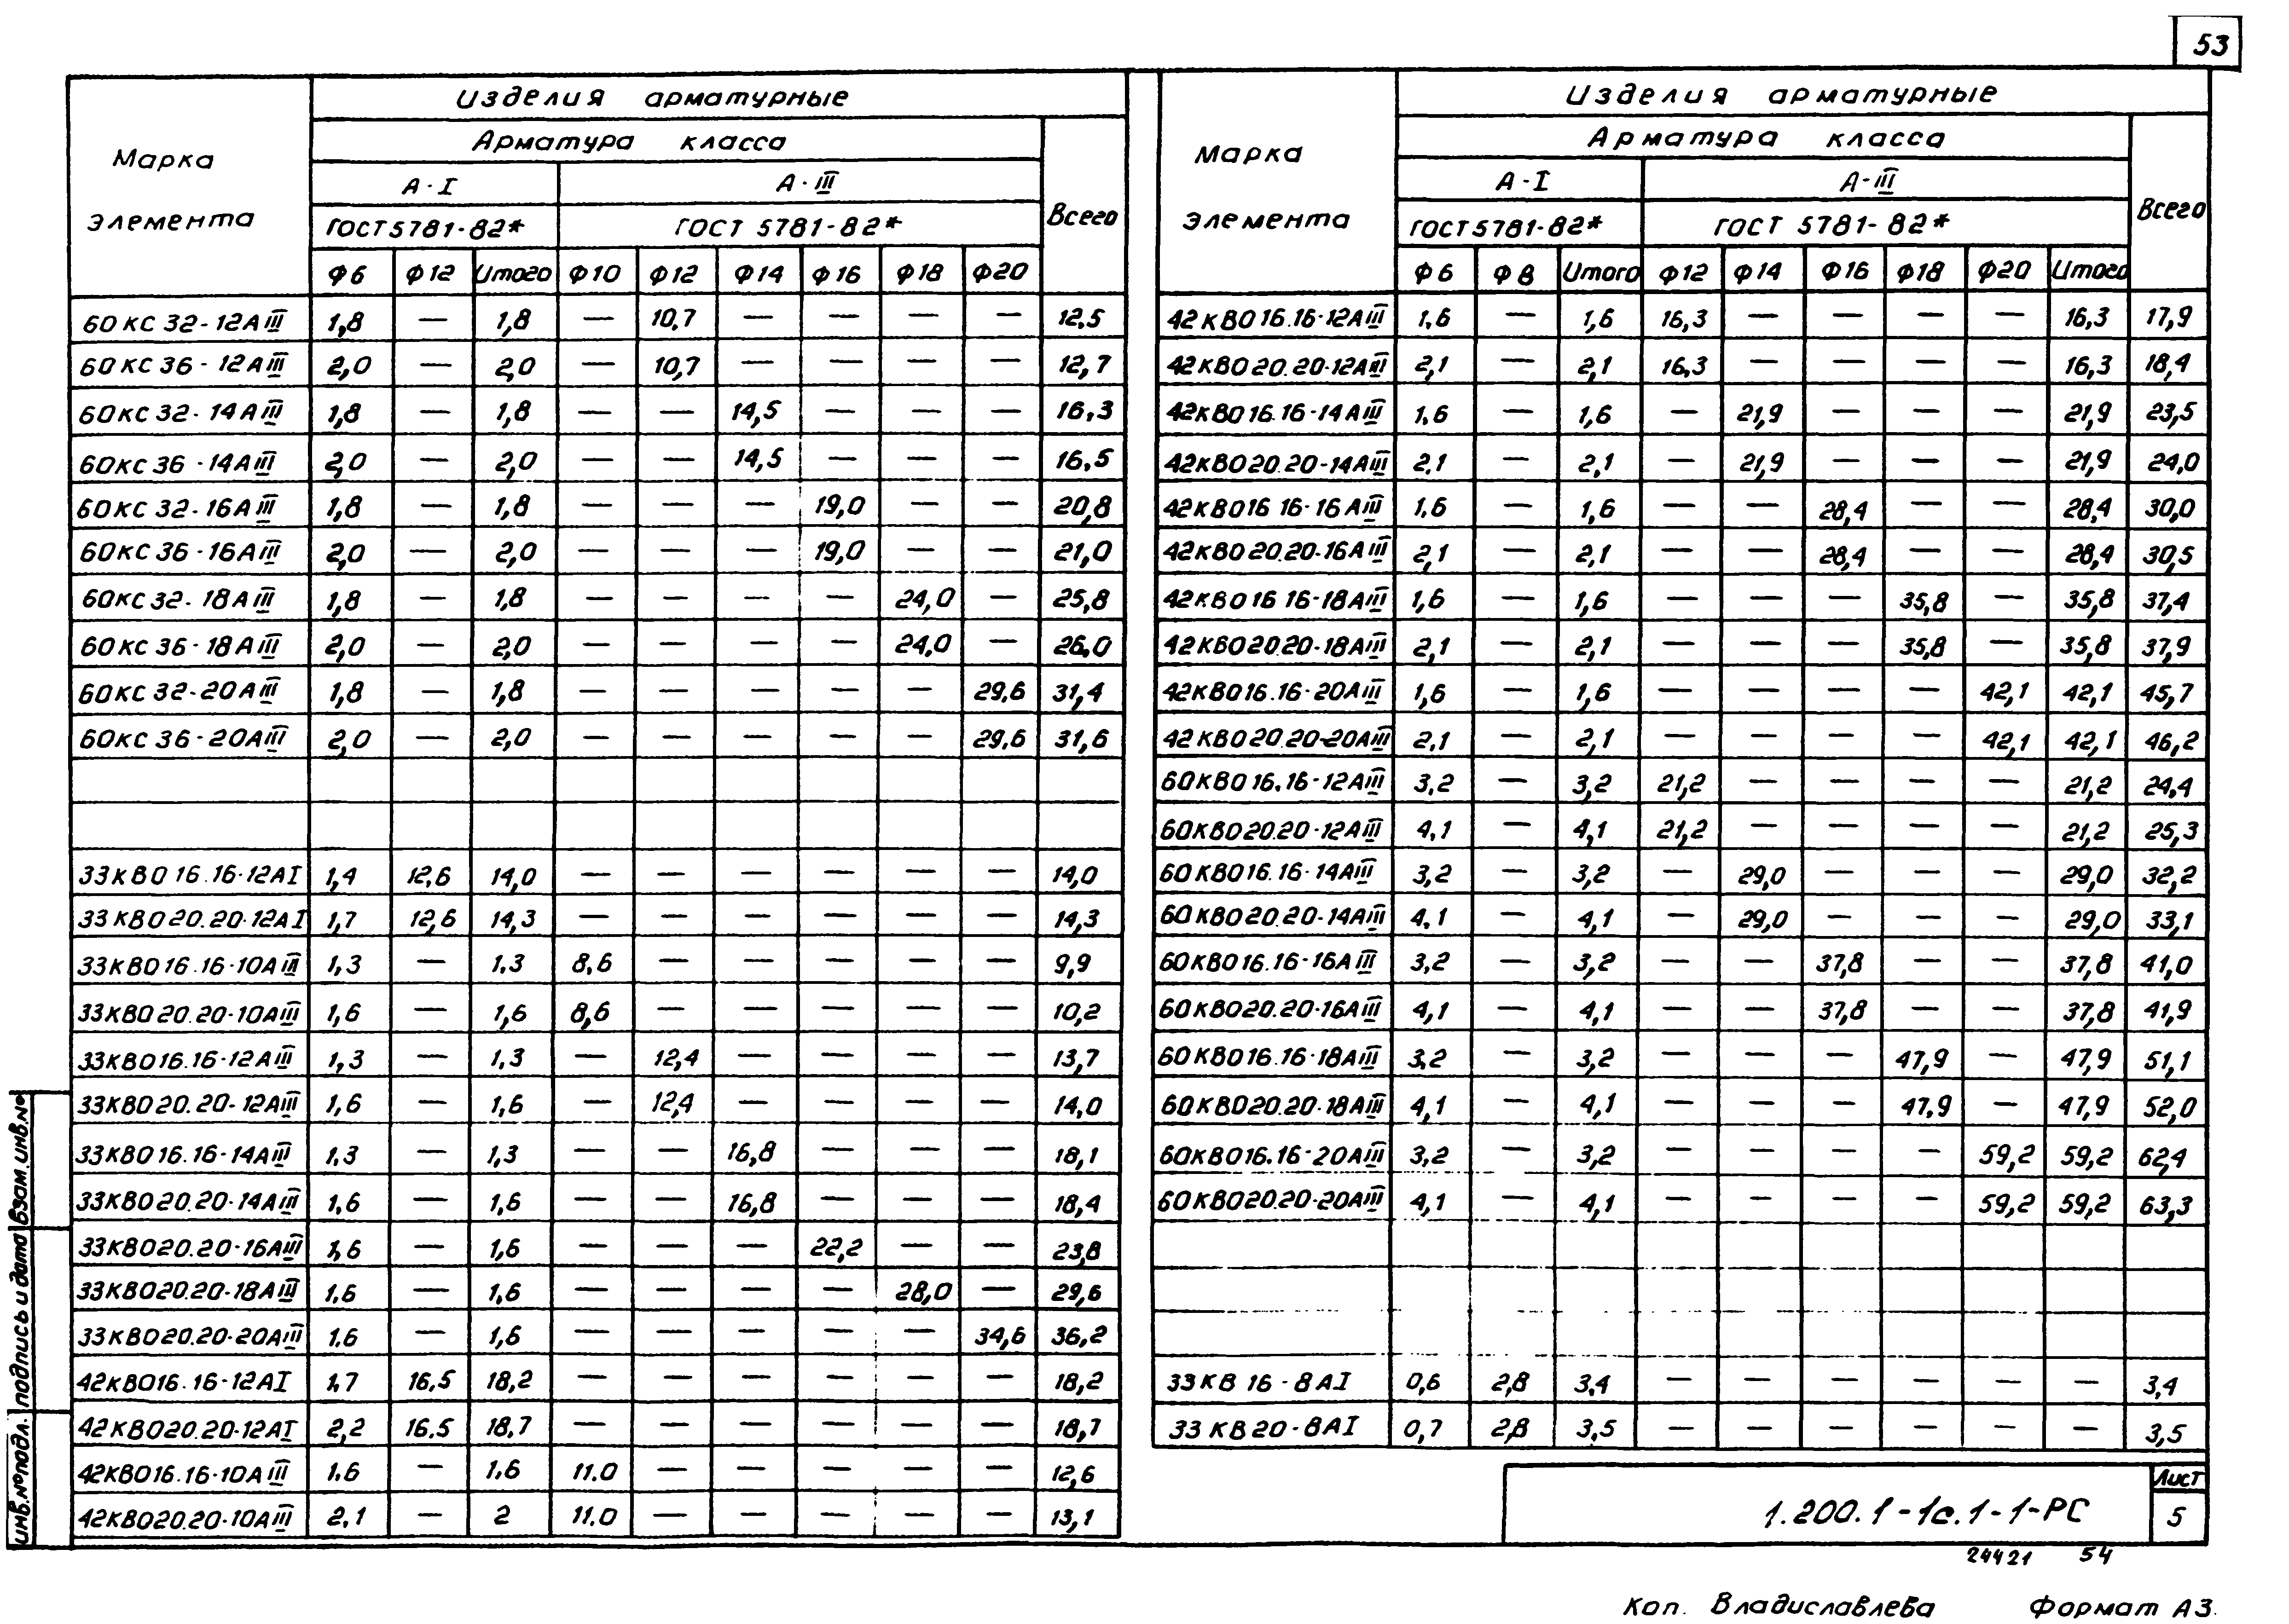 53
Марка элемента | Изделия арматурные | Всего
Арматура класса
А-I | А-III
ГОСТ 5781-82* | ГОСТ 5781-82*
Ф6 | Ф12 | Итого | Ф10 | Ф12 | Ф14 | Ф16 | Ф18 | Ф20
60КС 32-12АIII | 1,8 | — | 1,8 | — | 10,7 | — | — | — | — | 12,5
60КС 36-12АIII | 2,0 | — | 2,0 | — | 10,7 | — | — | — | — | 12,7
60КС 32-14АIII | 1,8 | — | 1,8 | — | — | 14,5 | — | — | — | 16,3
60КС 36-14АIII | 2,0 | — | 2,0 | — | — | 14,5 | — | — | — | 16,5
60КС 32-16АIII | 1,8 | — | 1,8 | — | — | — | 19,0 | — | — | 20,8
60КС 36-16АIII | 2,0 | — | 2,0 | — | — | — | 19,0 | — | — | 21,0
60КС 32-18АIII | 1,8 | — | 1,8 | — | — | — | — | 24,0 | — | 25,8
60КС 36-18АIII | 2,0 | — | 2,0 | — | — | — | — | 24,0 | — | 26,0
60КС 32-20АIII | 1,8 | — | 1,8 | — | — | — | — | — | 29,6 | 31,4
60КС 36-20АIII | 2,0 | — | 2,0 | — | — | — | — | — | 29,6 | 31,6
33КВО 16.16-12АI | 1,4 | 12,6 | 14,0 | — | — | — | — | — | — | 14,0
33КВО 20.20-12АI | 1,7 | 12,6 | 14,3 | — | — | — | — | — | — | 14,3
33КВО 16.16-10АIII | 1,3 | — | 1,3 | 8,6 | — | — | — | — | — | 9,9
33КВО 20.20-10АIII | 1,6 | — | 1,6 | 8,6 | — | — | — | — | — | 10,2
33КВО 16.16-12АIII | 1,3 | — | 1,3 | — | 12,4 | — | — | — | — | 13,7
33КВО 20.20-12АIII | 1,6 | — | 1,6 | — | 12,4 | — | — | — | — | 14,0
33КВО 16.16-14АIII | 1,3 | — | 1,3 | — | — | 16,8 | — | — | — | 18,1
33КВО 20.20-14АIII | 1,6 | — | 1,6 | — | — | 16,8 | — | — | — | 18,4
33КВО 20.20-16АIII | 1,6 | — | 1,6 | — | — | — | 22,2 | — | — | 23,8
33КВО 20.20-18АIII | 1,6 | — | 1,6 | — | — | — | — | 28,0 | — | 29,6
33КВО 20.20-20АIII | 1,6 | — | 1,6 | — | — | — | — | — | 34,6 | 36,2
42КВО 16.16-12АI | 1,7 | 16,5 | 18,2 | — | — | — | — | — | — | 18,2
42КВО 20.20-12АI | 2,2 | 16.5 | 18,7 | — | — | — | — | — | — | 18,7
42КВО 16.16-10АIII | 1.6 | — | 1.6 | 11.0 | — | — | — | — | — | 12,6
42КВО 20.20-10АIII | 2.1 | — | 2 | 11.0 | — | — | — | — | — | 13,1
Марка элемента | Изделия арматурные | Всего
Арматура класса
А-I | А-III
ГОСТ 5781-82* | ГОСТ 5781-82*
Ф6 | Ф8 | Итого | Ф12 | Ф14 | Ф16 | Ф18 | Ф20 | Итого
42КВО 16.16-12АIII | 1,6 | — | 1,6 | 16,3 | — | — | — | — | 16,3 | 17,9
42КВО 20.20-12АIII | 2,1 | — | 2,1 | 16,3 | — | — | — | — | 16,3 | 18,4
42КВО 16.16-14АIII | 1,6 | — | 1,6 | — | 21,9 | — | — | — | 21,9 | 23,5
42КВО 20.20-14АIII | 2,1 | — | 2,1 | — | 21,9 | — | — | — | 21,9 | 24,0
42КВО 16 16-16АIII | 1,6 | — | 1,6 | — | — | 28,4 | — | — | 28,4 | 30,0
42КВО 20.20-16АIII | 2,1 | — | 2,1 | — | — | 28,4 | — | — | 28,4 | 30,5
42КВО 16 16-18АIII | 1,6 | — | 1,6 | — | — | — | 35,8 | — | 35,8 | 37,4
42КВО 20.20-18АIII | 2,1 | — | 2,1 | — | — | — | 35,8 | — | 35,8 | 37,9
42КВО 16.16-20АIII | 1,6 | — | 1,6 | — | — | — | — | 42,1 | 42,1 | 45,7
42КВО 20.20-20АIII | 2,1 | — | 2,1 | — | — | — | — | 42,1 | 42,1 | 46,2
60КВО 16.16-12АIII | 3,2 | — | 3,2 | 21,2 | — | — | — | — | 21,2 | 24,4
60КВО 20.20-12АIII | 4,1 | — | 4,1 | 21,2 | — | — | — | — | 21,2 | 25,3
60КВО 16.16-14АIII | 3,2 | — | 3,2 | — | 29,0 | — | — | — | 29,0 | 32,2
60КВО 20.20-14АIII | 4,1 | — | 4,1 | — | 29,0 | — | — | — | 29,0 | 33,1
60КВО 16.16-16АIII | 3,2 | — | 3,2 | — | — | 37,8 | — | — | 37,8 | 41,0
60КВО 20.20-16АIII | 4,1 | — | 4,1 | — | — | 37,8 | — | — | 37,8 | 41,9
60КВО 16.16-18АIII | 3,2 | — | 3,2 | — | — | — | 47,9 | — | 47,9 | 51,1
60КВО 20.20-18АIII | 4,1 | — | 4,1 | — | — | — | 47,9 | — | 47,9 | 52,0
60КВО 16.16-20АIII | 3,2 | — | 3,2 | — | — | — | — | 59,2 | 59,2 | 62,4
60КВО 20.20-20АIII | 4,1 | — | 4,1 | — | — | — | — | 59,2 | 59,2 | 63,3
33 КВ 16-8АI | 0,6 | 2,8 | 3,4 | — | — | — | — | — | — | 3,4
33 КВ 20-8АI | 0,7 | 2,8 | 3,5 | — | — | — | — | — | — | 3,5
Инв.№подл. Подпись и дата Взам.инв.№
1.200.1-1с.1-1-РС
Лист
5
24421 54
Коп. Владиславлева Формат А3.